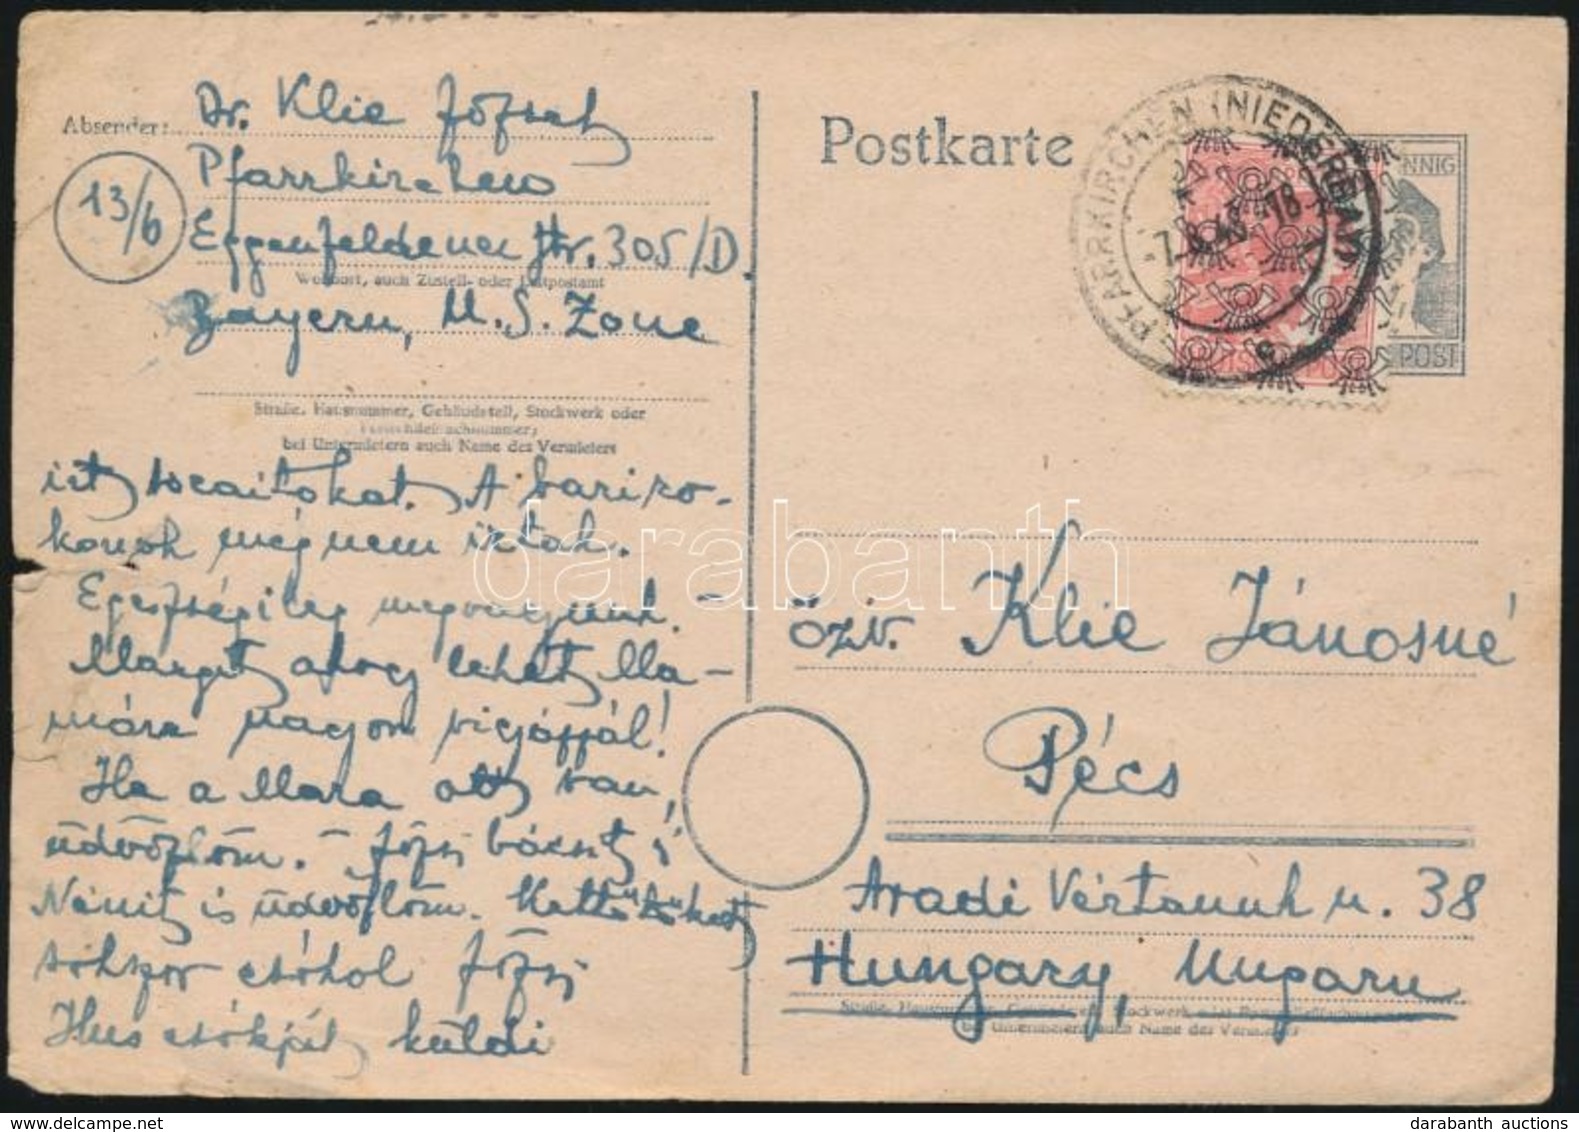 Absender:
Dr. Klie József
Pfarrkirchen
13/b
Eggenfeldener Str. 305/D.
Wohnort, auch Zustell- oder Leitpostamt
Bayern, U.S. Zone
Straße, Hausnummer, Gebäudeteil, Stockwerk oder
bei Untermietern auch Name des Vermieters
A bari ro-
konok még nem írtak.
Egészségileg megvagyunk. –
Margit ahogy lehet Ma-
mára nagyon vigyázzál!
Ha a Mara ott van,
üdvözlöm. – Józsi bácsit,
Nénit is üdvözlöm. Kettőtöket
sokszor csókol Józsi
Hus csókját küldi
Postkarte
PFARRKIRCHEN (NIEDERBAY)
-7.8.48.-18
c
PFENNIG
POST
özv. Klie Jánosné
Pécs
Aradi Vértanuk u. 38
Hungary, Ungarn
Straße, Hausnummer, Gebäudeteil, Stockwerk
bei Untermietern auch Name des Vermieters
darabanth
darabanth auctions
www.delcampe.net